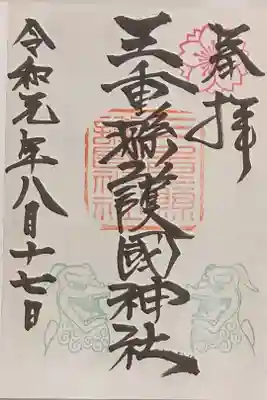 奉拝
三重縣護國神社
令和元年八月十七日